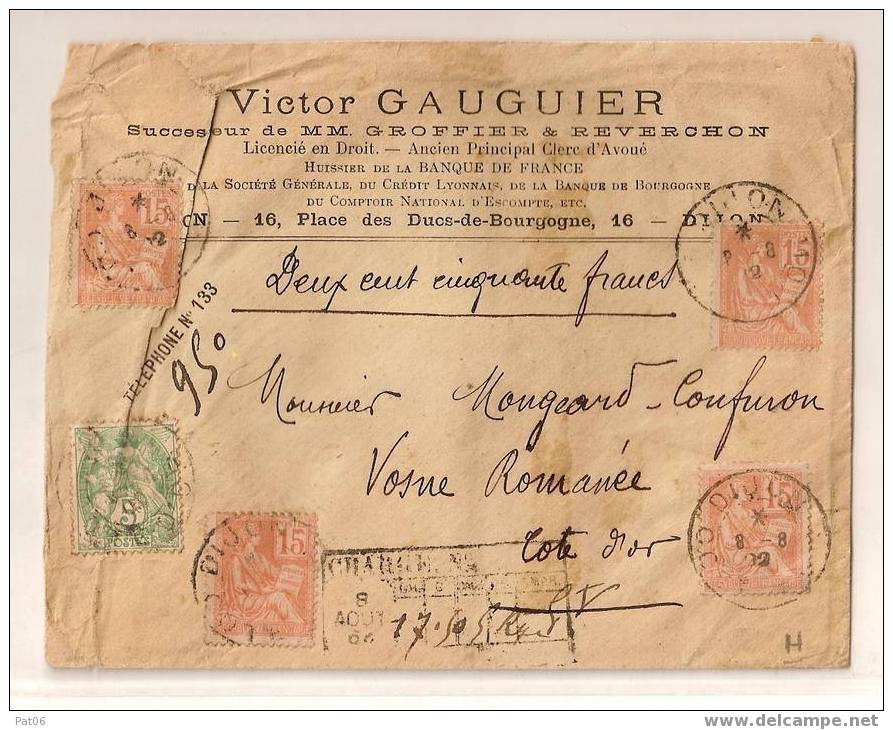 Victor GAUGUIER
Succeseur de MM. GROFFIER & REVERCHON
Licencié en Droit. — Ancien Principal Clerc d'Avoué
HUISSIER DE LA BANQUE DE FRANCE
DE LA SOCIÉTÉ GÉNÉRALE, DU CRÉDIT LYONNAIS, DE LA BANQUE DE BOURGOGNE
DU COMPTOIR NATIONAL D'ESCOMPTE, ETC.
ON — 16, Place des Ducs-de-Bourgogne, 16 — DIJON
TÉLÉPHONE N° 133
950
Deux cent cinquante francs
Monsieur Mongeard-Confuron
Vosne Romanée
Cote d'or
15
DIJON
15
DIJON
5
POSTES
15
DIJON
15
DIJON
8 -8
02
CHARGE
8
AOUT
H
Pat06
www.delcampe.net